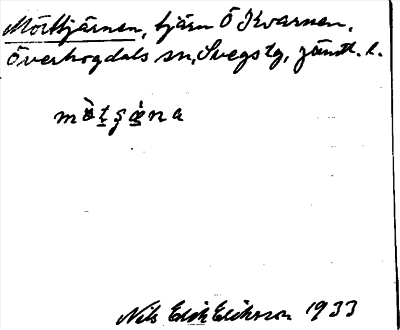 Mörttjärnen, tjärn Ö Kvarnen,
Överhogdals sn, Svegs tg, Jämtl. l.
Nils Erik Eriksson 1933